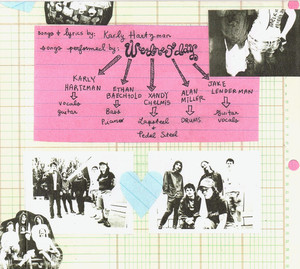 songs + lyrics by: Karly Hartzman
songs performed by: Wednesday
KARLY HARTZMAN
vocals
guitar
ETHAN BAECHTOLD
Bass
Piano
XANDY CHELMIS
Lapsteel
Pedal Steel
ALAN MILLER
DRUMS
JAKE LENDERMAN
Guitar
vocals